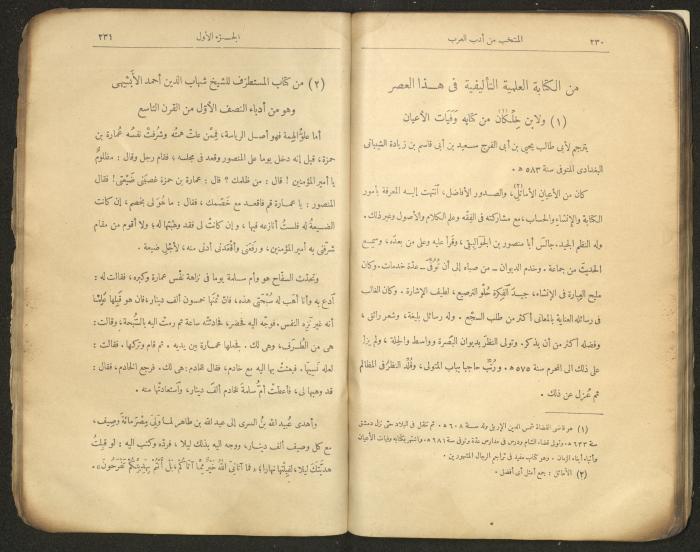 ٢٣٠
المنتخب من أدب العرب
من الكتابة العلمية التأليفية فى هذا العصر
(١) ولابن خلكان من كتابه وفيات الأعيان
يترجم لأبى طالب يحيى بن أبى الفرج سعيد بن أبى قاسم بن زيادة الشيبانى
البغدادى المتوفى سنة ٥٨٣ ه.
كان من الأعيان الأماثل، والصدور الأفاضل، انتهت إليه المعرفة بأمور
الكتابة والإنشاء والحساب، مع مشاركته فى الفقه وعلم الكلام والأصول وغير ذلك.
وله النظم الجيد. جالس أبا منصور بن الجواليقى، وقرأ عليه وعلى من بعده، وسمع
الحديث من جماعة. وخدم الديوان – من صباه إلى أن توفى – عدة خدمات. وكان
مليح العبارة فى الإنشاء، جيد الفكرة حلو الترصيع، لطيف الإشارة. وكان الغالب
فى رسائله العناية بالمعانى أكثر من طلب السجع. وله رسائل بليغة، وشعر رائق،
وفضله أكثر من أن يذكر. وتولى النظر بديوان البصرة وواسط والحلة، ولم يزل
على ذلك الى المحرم سنة ٥٧٥ ه. ورتب حاجبا بباب المتولى، وقلد النظر فى المظالم
ثم عزل عن ذلك.
(١) هو قاضى القضاة شمس الدين الإربلى ولد سنة ٦٠٨ ه. ثم تنقل فى البلاد حتى نزل دمشق
سنة ٦٣٣ ه. وتولى قضاء الشام ودرس فى مدارس عدة وتوفى سنة ٦٨١ ه واشتهر بكتابه وفيات الأعيان
وأنباء أبناء الزمان. وهو كتاب مفيد فى تراجم الرجال المشهورين.
(٢) الأماثل : جمع أمثل أى أفضل.
الجزء الأول
٢٣١
(٢) من كتاب المستطرف للشيخ شهاب الدين أحمد الأبشيهى
وهو من أدباء النصف الأول من القرن التاسع
أما علو الهمة فهو أصل الرياسة، فممن علت همته وشرفت نفسه عمارة بن
حمزة، قيل إنه دخل يوما على المنصور وقعد فى مجلسه، فقام رجل وقال : مظلوم
يا أمير المؤمنين ! قال : من ظلمك ؟ قال : عمارة بن حمزة غصبنى ضيعتى ! فقال
المنصور : يا عمارة قم فاقعد مع خصمك، فقال : ما هو لى بخصم، إن كانت
الضيعة له فلست أنازعه فيها، وإن كانت لى فقد وهبتها له؛ ولا أقوم من مقام
شرفنى به أمير المؤمنين، ورفعنى وأقعدنى أدنى منه، لأجل ضيعة.
وتحدث السفاح هو وأم سلمة يوما فى نزاهة نفس عمارة وكبره، فقالت له :
ادع به وأنا أهب له سبحتى هذه، فإن ثمنها خمسون ألف دينار، فإن هو قبلها علمنا
أنه غير نزه النفس. فوجه اليه فحضر، فحادثته ساعة ثم رمت اليه بالسبحة، وقالت :
هى من الطرف، وهى لك. فجعلها عمارة بين يديه. ثم قام وتركها. فقالت :
لعله نسيها. فبعثت بها اليه مع خادم، فقال للخادم : هى لك. فرجع الخادم، فقال :
قد وهبها لى، فأعطت أم سلمة للخادم ألف دينار، واستعادتها منه.
وأهدى عبيد الله بن السرى إلى عبد الله بن طاهر لما ولى مصر مائة وصيف،
مع كل وصيف ألف دينار، ووجه اليه بذلك ليلا، فرده وكتب اليه : لو قبلت
هديتك ليلا، لقبلتها نهارا ؛ «فما آتانى الله خير مما آتاكم، بل أنتم بهديتكم تفرحون».